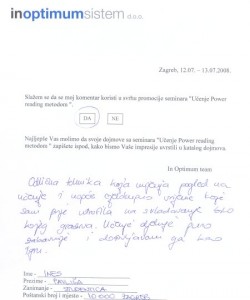 inoptimumsistem d.o.o.
Zagreb, 12.07. – 13.07.2008.
Slažem se da se moj komentar koristi u svrhu promocije seminara "Učenje Power
reading metodom ".
DA NE
Najljepše Vas molimo da svoje dojmove sa seminara "Učenje Power reading
metodom " zapišete ispod, kako bismo Vaše impresije uvrstili u katalog dojmova.
In Optimum team
Odlična tehnika koja mijenja pogled na
učenje i uopće cjelokupno vrijeme koje
sam prije utrošila na savladavanje
gradiva. Učenje djeluje puno
i kao
igru.
Ime : INES
Prezime :
Zanimanje : STUDENTICA
Poštanski broj i mjesto : 10 000 ZAGREB